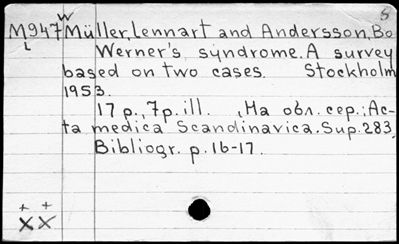 S
W
M947 Müller, Lennart and Andersson, Bo
L Werner's syndrome. A survey
based on two cases. Stockholm
1953.
17 p., 7 p. ill. , На обл. сер.: Ac-
ta medica Scandinavica. Sup. 283.
Bibliogr. p. 16-17.
+ +
X X